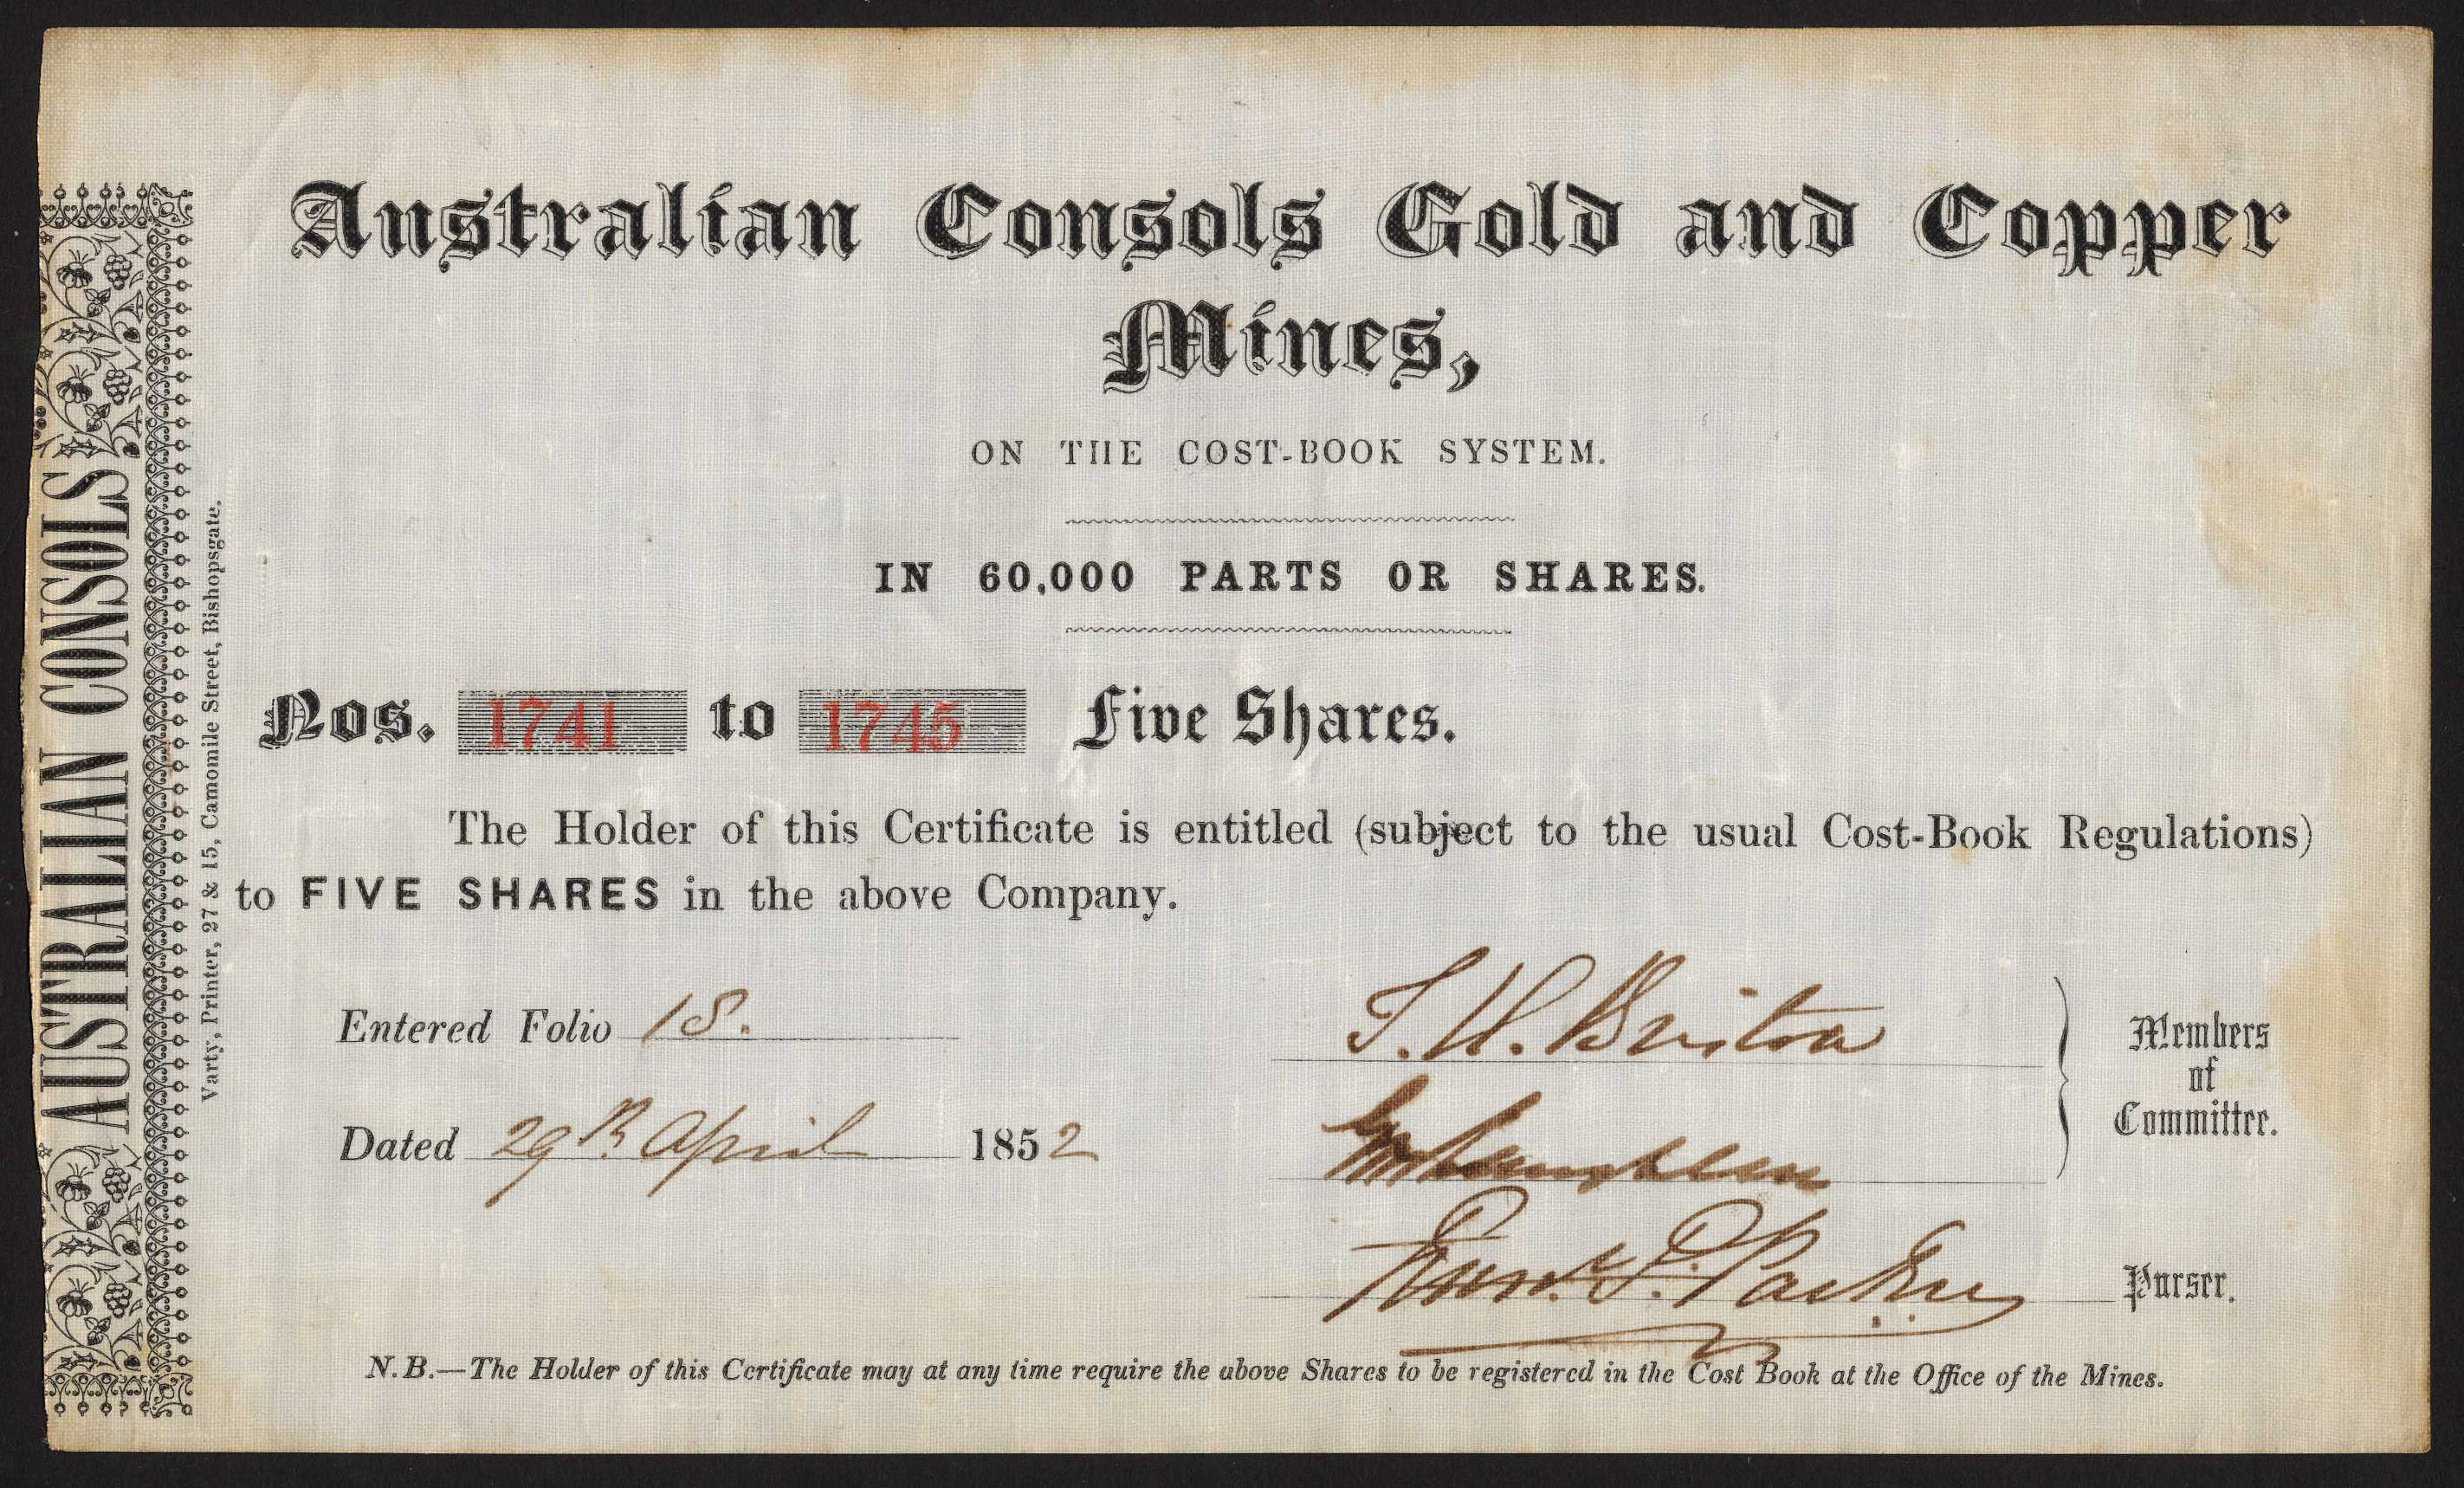 Australian Consols Gold and Copper
Mines,
ON THE COST-BOOK SYSTEM.
IN 60,000 PARTS OR SHARES.
Nos. 1741 to 1745 Five Shares.
The Holder of this Certificate is entitled (subject to the usual Cost-Book Regulations)
to FIVE SHARES in the above Company.
Entered Folio 18.
Dated 29th April 1852
T. H.
Members
of
Committee.
Purser.
N.B.—The Holder of this Certificate may at any time require the above Shares to be registered in the Cost Book at the Office of the Mines.
AUSTRALIAN CONSOLS
Varty, Printer, 27 & 15, Camomile Street, Bishopsgate.